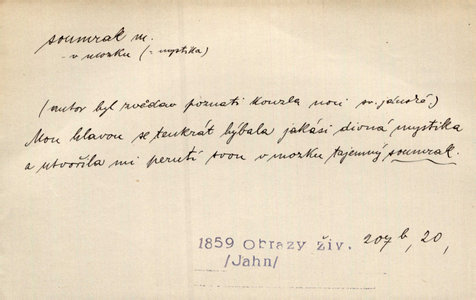 soumrak m.
- v mozku (= mystika)
(autor byl zvědav poznati kouzla noci sv. jánské)
Mou hlavou se tenkrát hýbala jakási divná mystika
a utvořila mi perutí svou v mozku tajemný soumrak.
1859 Obrazy živ. 207b, 20,
/Jahn/